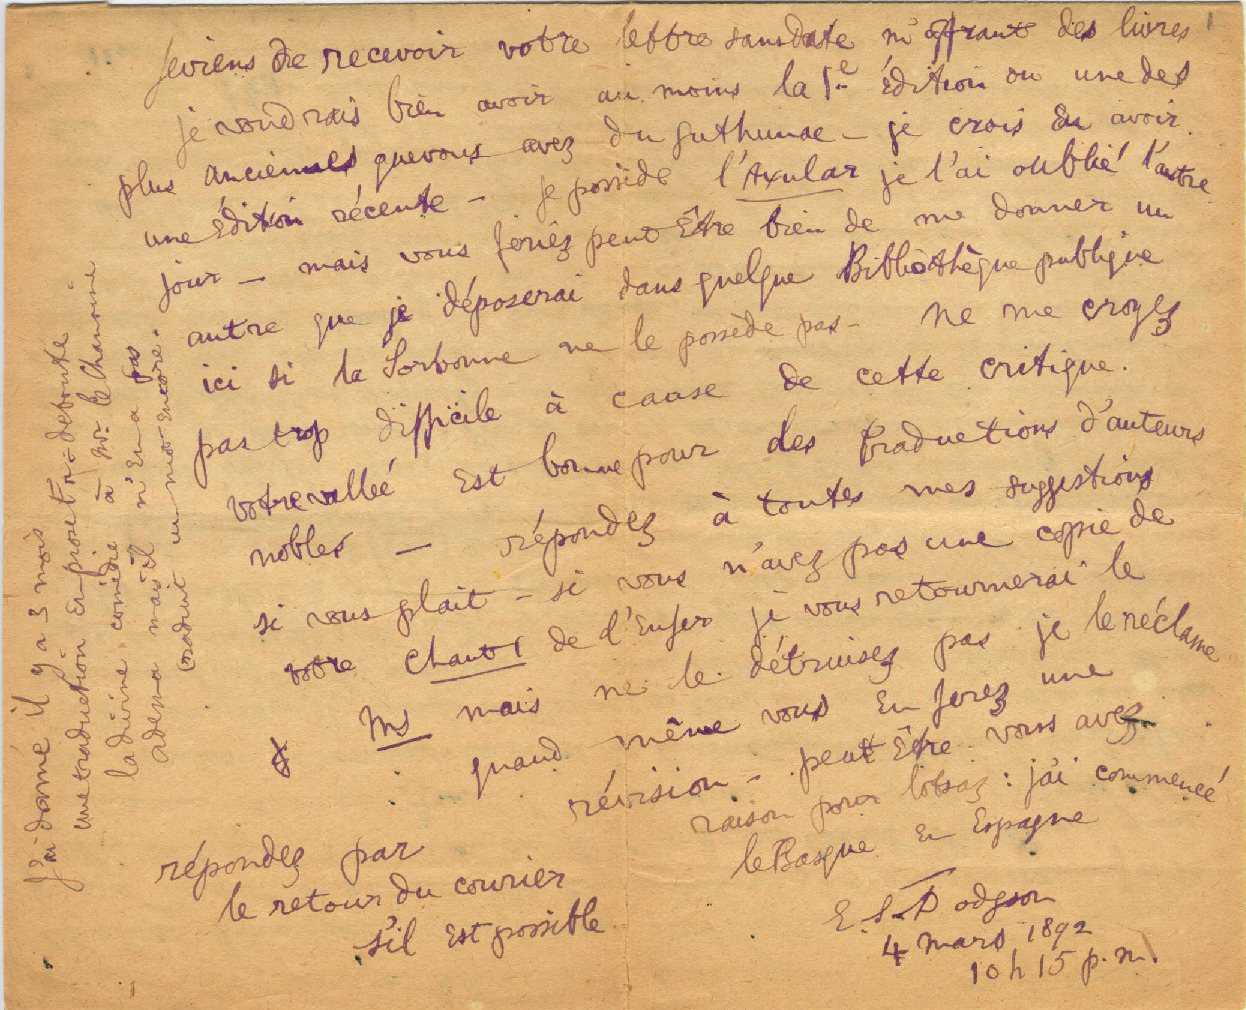 Je viens de recevoir votre lettre sans date m'offrant des livres
je voudrais bien avoir au moins la 1re édition ou une des
plus anciennes que vous avez du Guthunac – je crois en avoir
une édition récente – je possède l'Axular je l'ai oublié l'autre
jour – mais vous feriez peut être bien de me donner un
autre que je déposerai dans quelque Bibliothèque publique
ici si la Sorbonne ne le possède pas – Ne me croyez
pas trop difficile à cause de cette critique.
votre vallée est bonne pour des traductions d'auteurs
nobles – répondez à toutes mes suggestions
si vous plait – si vous n'avez pas une copie de
votre Chant 1 de l'Enfer je vous retournerai le
Ms mais ne le détruisez pas je le réclame
quand même vous en ferez une
révision – peut être vous avez
raison pour lotsaz : j'ai commencé
le Basque en Espagne
répondez par
le retour du courrier
s'il est possible
E. S. Dodgson
4 mars 1892
10 h 15 p.m.
J'ai donné il y a 3 mois
une traduction en prose de
la divine comédie à Mr. le Chanoine
Adema mais il m'en a pas
traduit un mot encore.